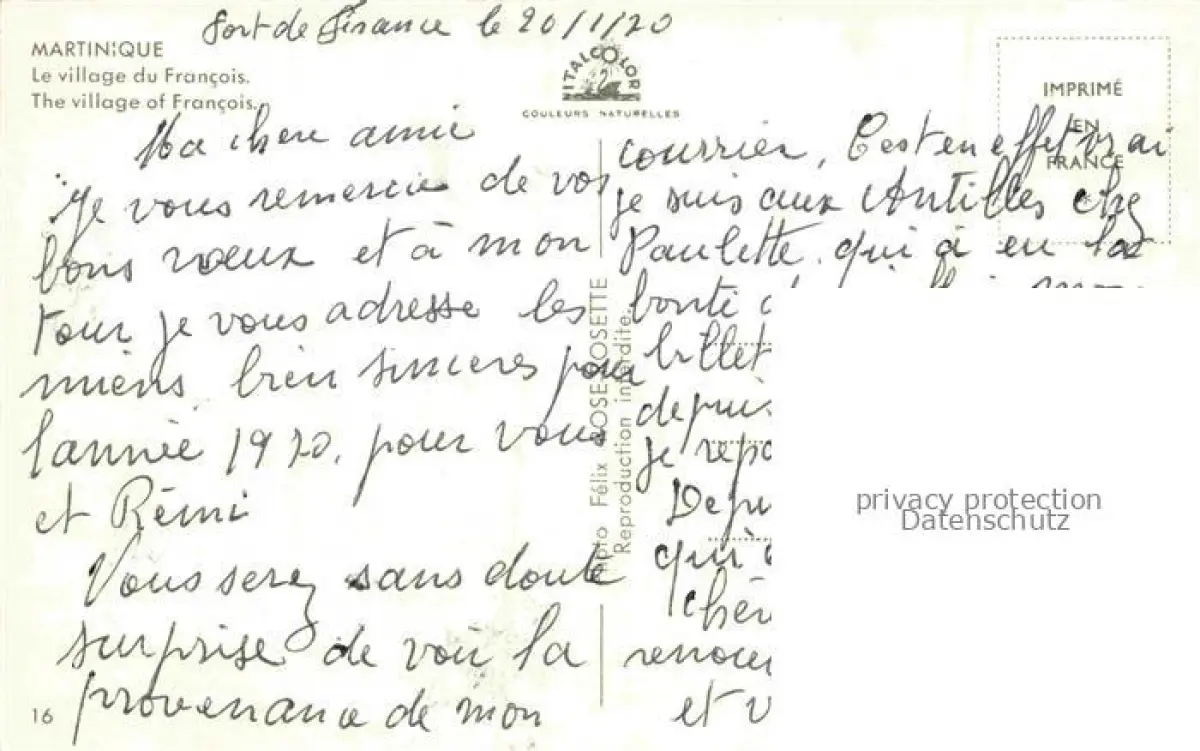 Fort de France le 20/1/70
MARTINIQUE
Le village du François.
The village of François.
ITALCOLOR
COULEURS NATURELLES
IMPRIMÉ
EN
FRANCE
Ma chere amie
Je vous remercie de vos
bons vœux et à mon
tour je vous adresse les
miens bien sinceres pour
l'année 1970, pour vous
et Rémi
Vous serez sans doute
surprise de voir la
provenance de mon
16
Photo Félix ROSE-ROSETTE
Reproduction interdite.
courrier, C'est en effet vrai
je suis aux Antilles chez
Paulette qui à eu la
bonté
billet
depuis
je
qui
et
privacy protection
Datenschutz